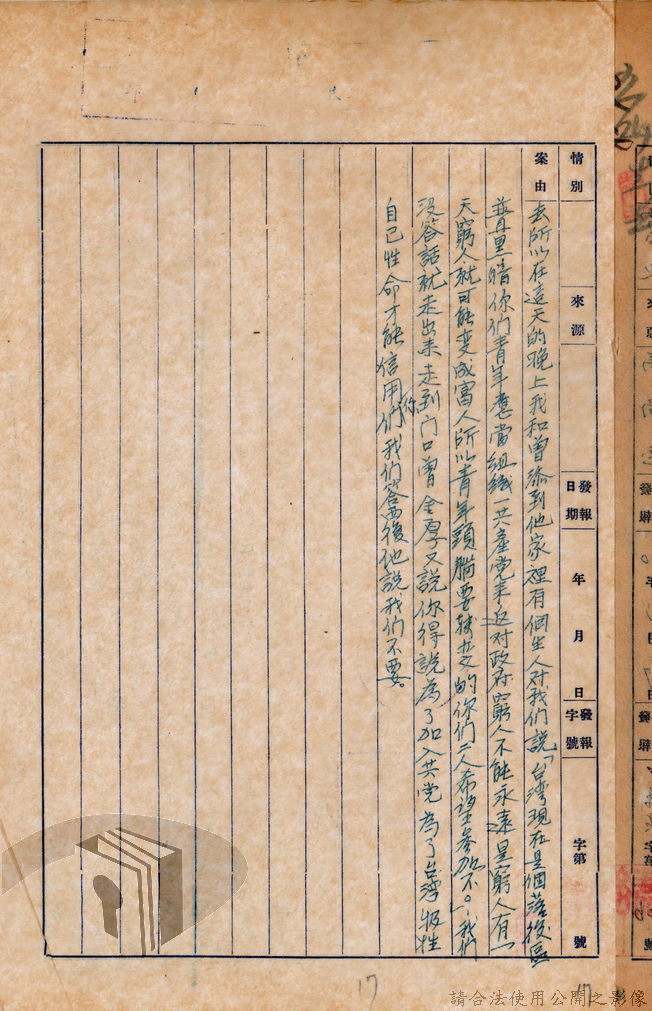 情別
來源
發報日期
年
月
日
發報字號
字第
號
案由
去所以在這天的晚上我和曾添到他家裡有個生人对我们說「台湾現在是個落後區
普黑暗你们青年應當組織一共產党來返对政府窮人不能永素是窮人有一
天窮人就可能变成富人所以青年頭腦要轉变的你们二人希望参加不。」我们
没答話就走出来走到门口曾金厚又說你得說為了加入共党為了台湾牺牲
自己性命才能信用你们我们答應後他說我们不要。
17
請合法使用公開之影像